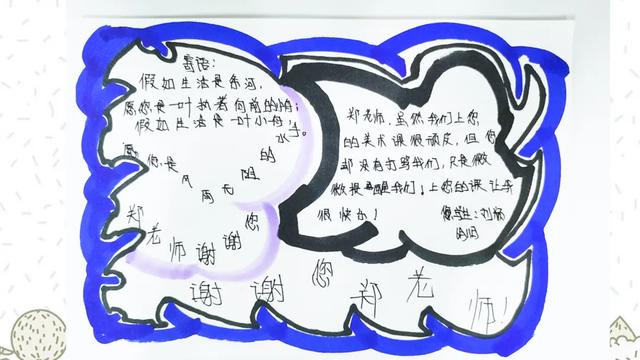 寄语:
假如生活是条河,
愿您是一叶执着向前的帆;
假如生活是一叶小舟,
愿您是风雨无阻的水手。
郑老师谢谢您
郑老师,虽然我们上您
的美术课很顽皮,但您
却没有打骂我们,只是微
微提醒我们!上您的课让我
很快乐!
学生:刘
谢谢您郑老师!